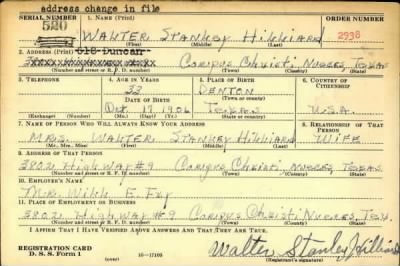 address change in file
SERIAL NUMBER 1. NAME (Print) ORDER NUMBER
520 WALTER Stanley Hilliard 2938
(First) (Middle) (Last)
2. ADDRESS (Print) 618 Duncan
Corpus Christi, Nueces, Texas
(Number and street or R. F. D. number) (Town) (County) (State)
3. TELEPHONE 4. AGE IN YEARS 5. PLACE OF BIRTH 6. COUNTRY OF CITIZENSHIP
33 DENTON
DATE OF BIRTH (Town or county)
Oct 17 1906 Texas U.S.A.
(Exchange) (Number) (Mo.) (Day) (Yr.) (State or country)
7. NAME OF PERSON WHO WILL ALWAYS KNOW YOUR ADDRESS 8. RELATIONSHIP OF THAT PERSON
Mrs. WALTER Stanley Hilliard Wife
(Mr., Mrs., Miss) (First) (Middle) (Last)
9. ADDRESS OF THAT PERSON
3802 Highway #9 Corpus Christi Nueces, Texas
(Number and street or R. F. D. number) (Town) (County) (State)
10. EMPLOYER'S NAME
Mr. Will E. Fly
11. PLACE OF EMPLOYMENT OR BUSINESS
3802 Highway #9 Corpus Christi Nueces, Tex.
(Number and street or R. F. D. number) (Town) (County) (State)
I AFFIRM THAT I HAVE VERIFIED ABOVE ANSWERS AND THAT THEY ARE TRUE.
REGISTRATION CARD
D. S. S. Form 1 16—17105 Walter Stanley Hilliard
(Registrant's signature)